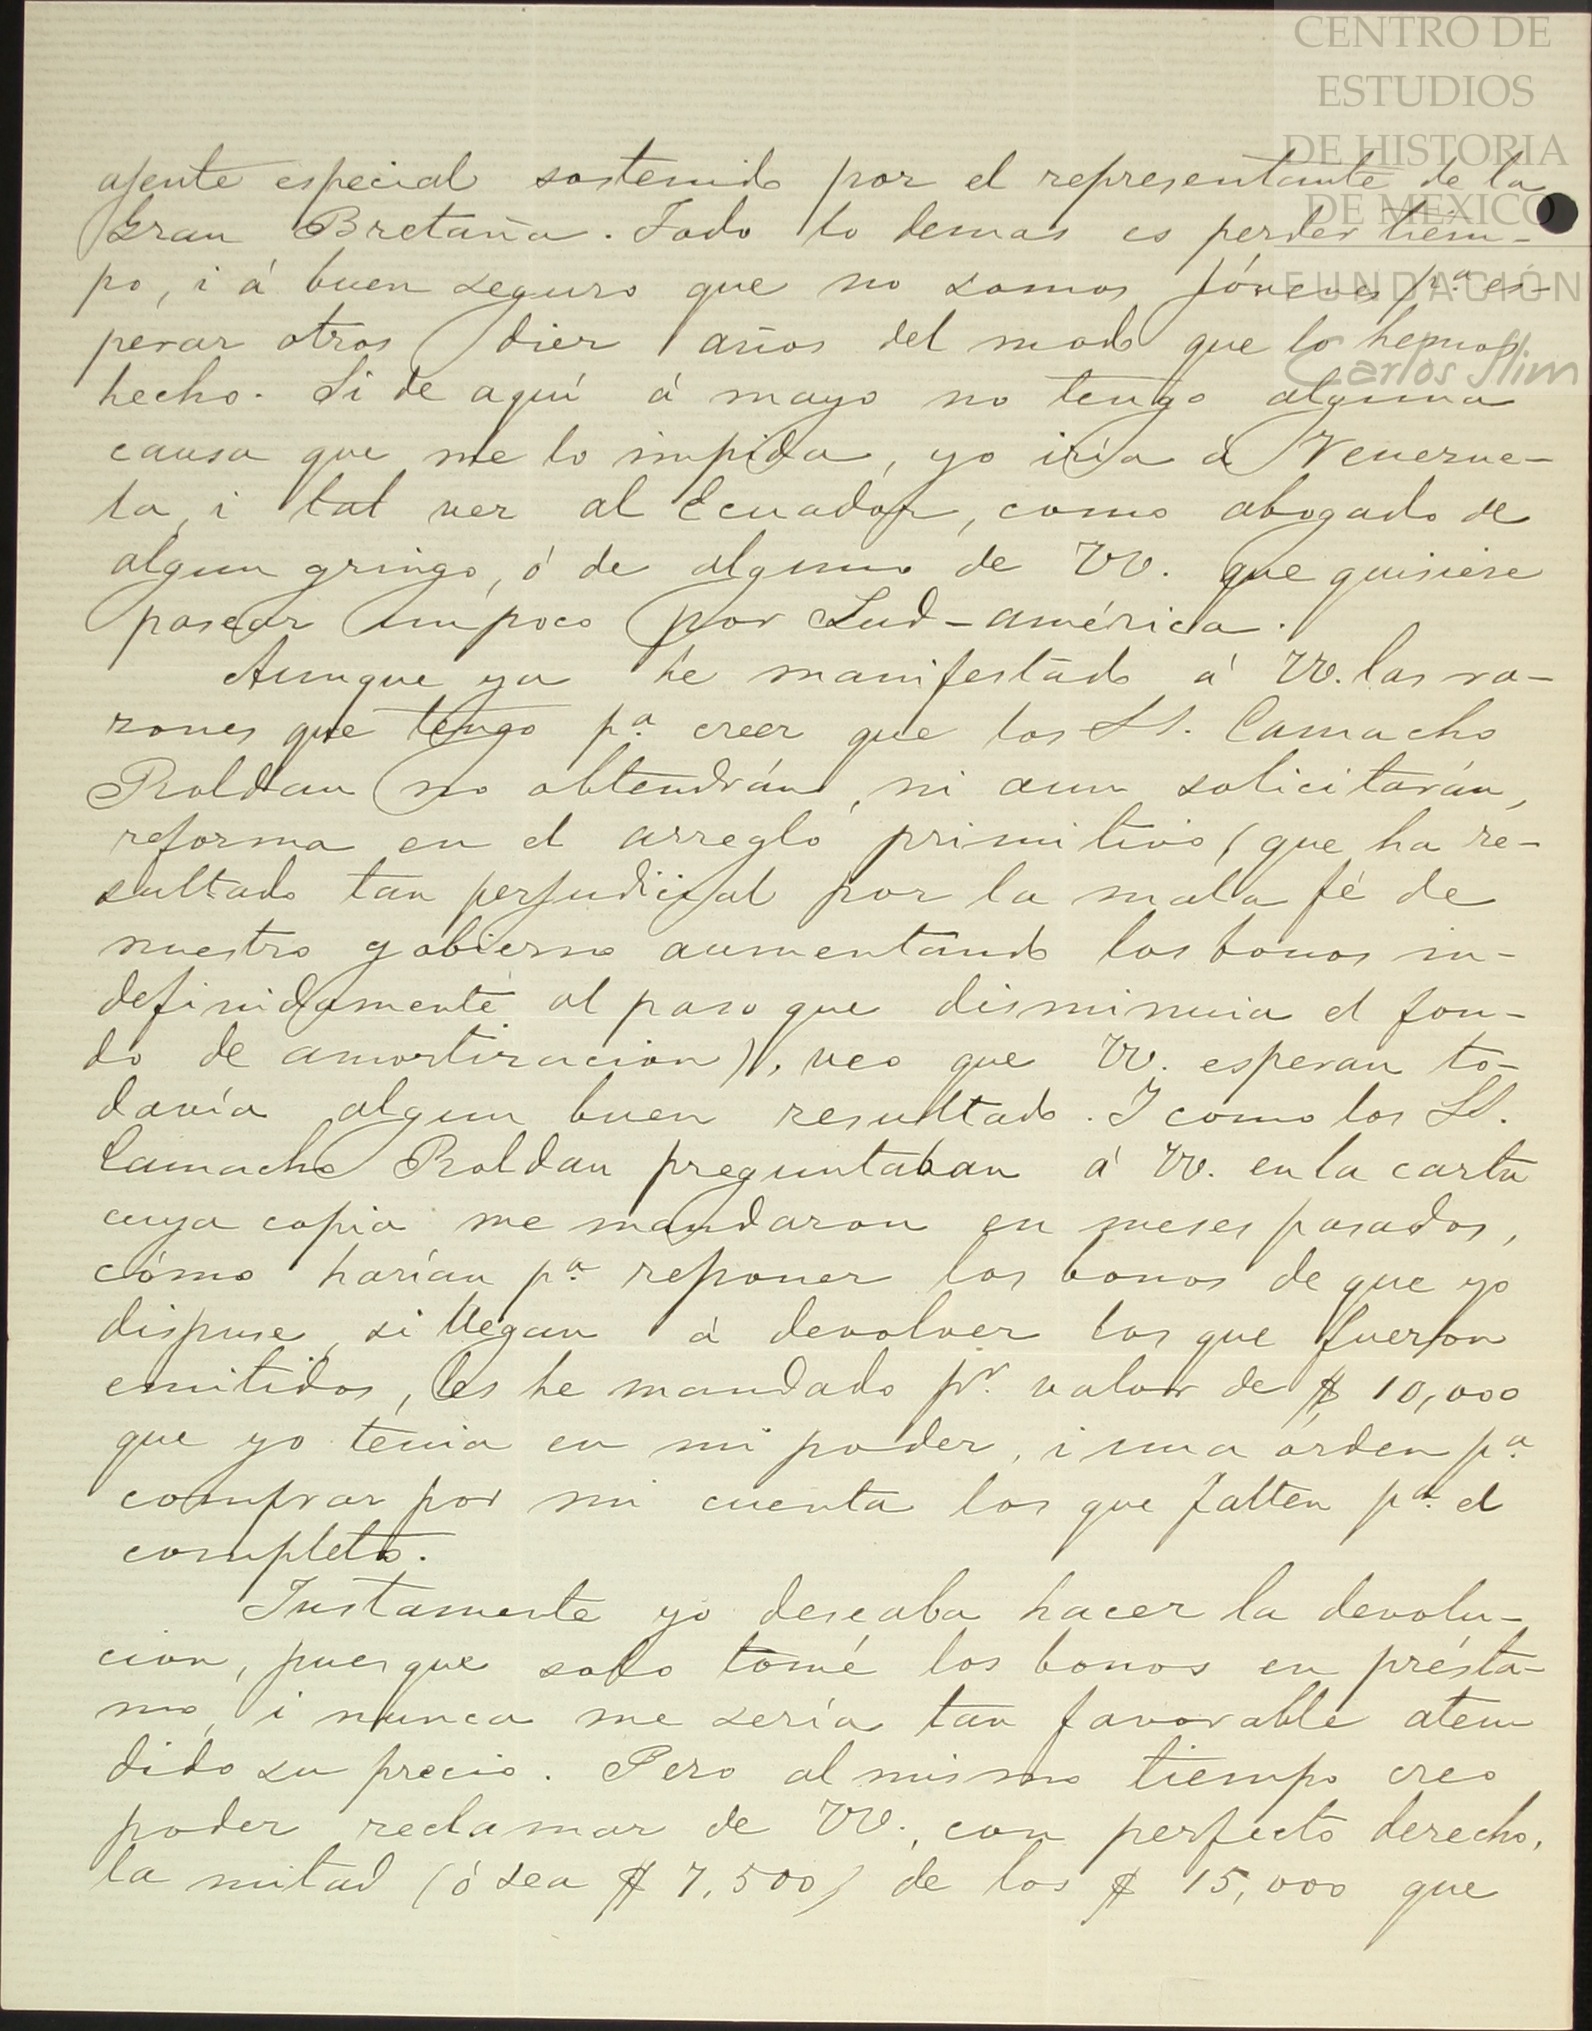 CENTRO DE
ESTUDIOS
DE HISTORIA
DE MEXICO
FUNDACIÓN
Carlos Slim
ajente especial sostenido por el representante de la
Gran Bretaña. Todo lo demas es perder tiem-
po, i á buen seguro que no somos jóvenes pa. es-
perar otros diez años del modo que lo hemos
hecho. Si de aquí á mayo no tengo alguna
causa que me lo impida, yo iría á Venezue-
la, i tal vez al Ecuador, como abogado de
algun gringo, ó de alguno de VV. que quisiese
pasear un poco por Sud-américa.
Aunque ya he manifestado á VV. las ra-
zones que tengo pa. creer que los SS. Camacho
Roldan no obtendrán, ni aun solicitarán,
reforma en el arreglo primitivo (que ha re-
sultado tan perjudicial por la mala fé de
nuestro gobierno aumentando los bonos in-
definidamente al paso que disminuia el fon-
do de amortizacion), veo que VV. esperan to-
davía algun buen resultado. I como los SS.
Camacho Roldan preguntaban á VV. en la carta
cuya copia me mandaron en meses pasados,
cómo harían pa. reponer los bonos de que yo
dispuse, si llegan á devolver los que fueron
emitidos, les he mandado pr. valor de $ 10,000
que yo tenia en mi poder, i una órden pa.
comprar por mi cuenta los que falten pa. el
completo.
Justamente yo deseaba hacer la devolu-
cion, pues que solo tomé los bonos en présta-
mo, i nunca me sería tan favorable aten
dido su precio. Pero al mismo tiempo creo
poder reclamar de VV., con perfecto derecho,
la mitad (ó sea $ 7,500) de los $ 15,000 que